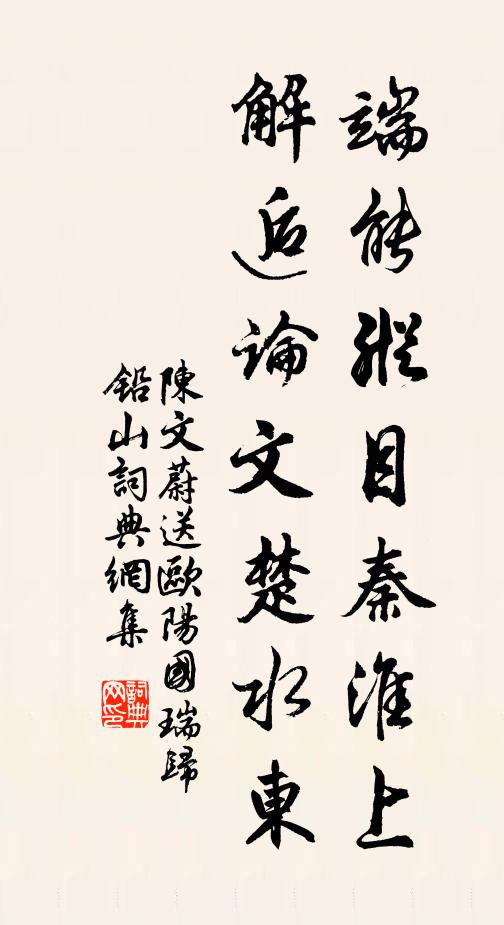 端能縱目秦淮上
解逅論文楚水東
陳文蔚送歐陽國瑞歸
鉛山詞典網集
詞典網印